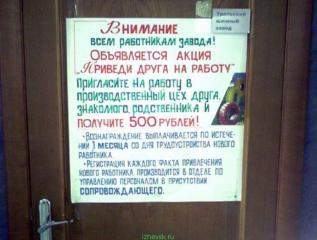 Уральский
шинный
завод
Внимание
всем работникам завода!
Объявляется акция
"Приведи друга на работу"
Пригласите на работу в
производственный цех друга,
знакомого, родственника и
получите 500 рублей!
•Вознаграждение выплачивается по истече-
нии 1 месяца со дня трудоустройства нового
работника.
•Регистрация каждого факта привлечения
нового работника производится в отделе по
управлению персоналом в присутствии
сопровождающего.
izhevsk.ru